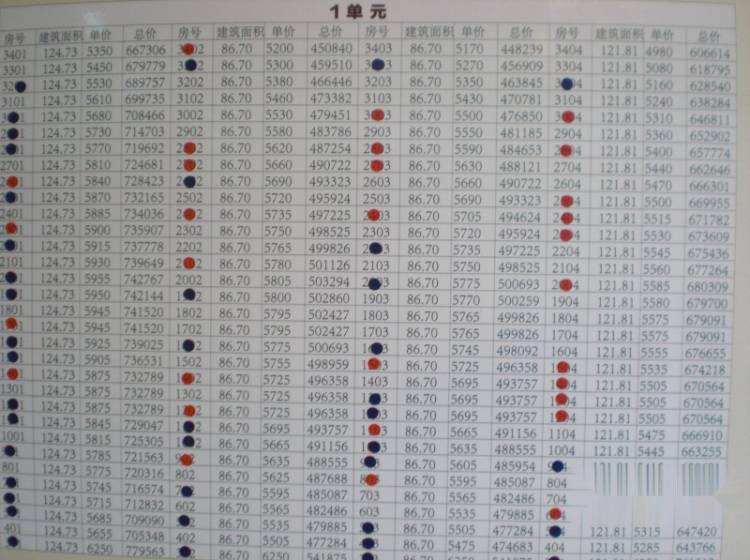 1单元
房号 建筑面积 单价 总价 房号 建筑面积 单价 总价 房号 建筑面积 单价 总价 房号 建筑面积 单价 总价
3401 124.73 5350 667306 86.70 5200 450840 3403 86.70 5170 448239 3404 121.81 4980 606614
3301 124.73 5450 679779 86.70 5300 459510 86.70 5270 456909 3304 121.81 5080 618795
124.73 5530 689757 3202 86.70 5380 466446 3203 86.70 5350 463845 121.81 5160 628540
3101 124.73 5610 699735 3102 86.70 5460 473382 3103 86.70 5430 470781 3104 121.81 5240 638284
124.73 5680 708466 3002 86.70 5530 479451 86.70 5500 476850 121.81 5310 646811
124.73 5730 714703 2902 86.70 5580 483786 2903 86.70 5550 481185 2904 121.81 5360 652902
124.73 5770 719692 86.70 5620 487254 86.70 5590 484653 121.81 5400 657774
2701 124.73 5810 724681 86.70 5660 490722 86.70 5630 488121 2704 121.81 5440 662646
124.73 5840 728423 86.70 5690 493323 2603 86.70 5660 490722 2604 121.81 5470 666301
124.73 5870 732165 2502 86.70 5720 495924 2503 86.70 5690 493323 121.81 5500 669955
2401 124.73 5885 734036 86.70 5735 497225 86.70 5705 494624 121.81 5515 671782
124.73 5900 735907 2302 86.70 5750 498525 2303 86.70 5720 495924 121.81 5530 673609
124.73 5915 737778 2202 86.70 5765 499826 86.70 5735 497225 2204 121.81 5545 675436
2101 124.73 5930 739649 86.70 5780 501126 2103 86.70 5750 498525 2104 121.81 5560 677264
124.73 5955 742767 2002 86.70 5805 503294 86.70 5775 500693 121.81 5585 680309
124.73 5950 742144 86.70 5800 502860 1903 86.70 5770 500259 1904 121.81 5580 679700
1801 124.73 5945 741520 1802 86.70 5795 502427 1803 86.70 5765 499826 1804 121.81 5575 679091
124.73 5945 741520 1702 86.70 5795 502427 1703 86.70 5765 499826 1704 121.81 5575 679091
124.73 5925 739025 86.70 5775 500693 86.70 5745 498092 1604 121.81 5555 676655
124.73 5905 736531 1502 86.70 5755 498959 86.70 5725 496358 121.81 5535 674218
124.73 5875 732789 86.70 5725 496358 1403 86.70 5695 493757 121.81 5505 670564
1301 124.73 5875 732789 1302 86.70 5725 496358 86.70 5695 493757 121.81 5505 670564
124.73 5875 732789 86.70 5725 496358 86.70 5695 493757 121.81 5505 670564
124.73 5845 729047 86.70 5695 493757 86.70 5665 491156 1104 121.81 5475 666910
1001 124.73 5815 725305 86.70 5665 491156 86.70 5635 488555 1004 121.81 5445 663255
124.73 5785 721563 86.70 5635 488555 86.70 5605 485954
801 124.73 5775 720316 802 86.70 5625 487688 86.70 5595 485087 804
124.73 5745 716574 86.70 5595 485087 703 86.70 5565 482486 704
124.73 5715 712832 602 86.70 5565 482486 603 86.70 5535 479885
124.73 5685 709090 86.70 5535 479885 86.70 5505 477284 121.81 5315 647420
401 124.73 5655 705348 402 86.70 5505 477284 86.70 5475 474683 404 121.81 5285 643766
124.73 6250 779563 86.70 6250 541875